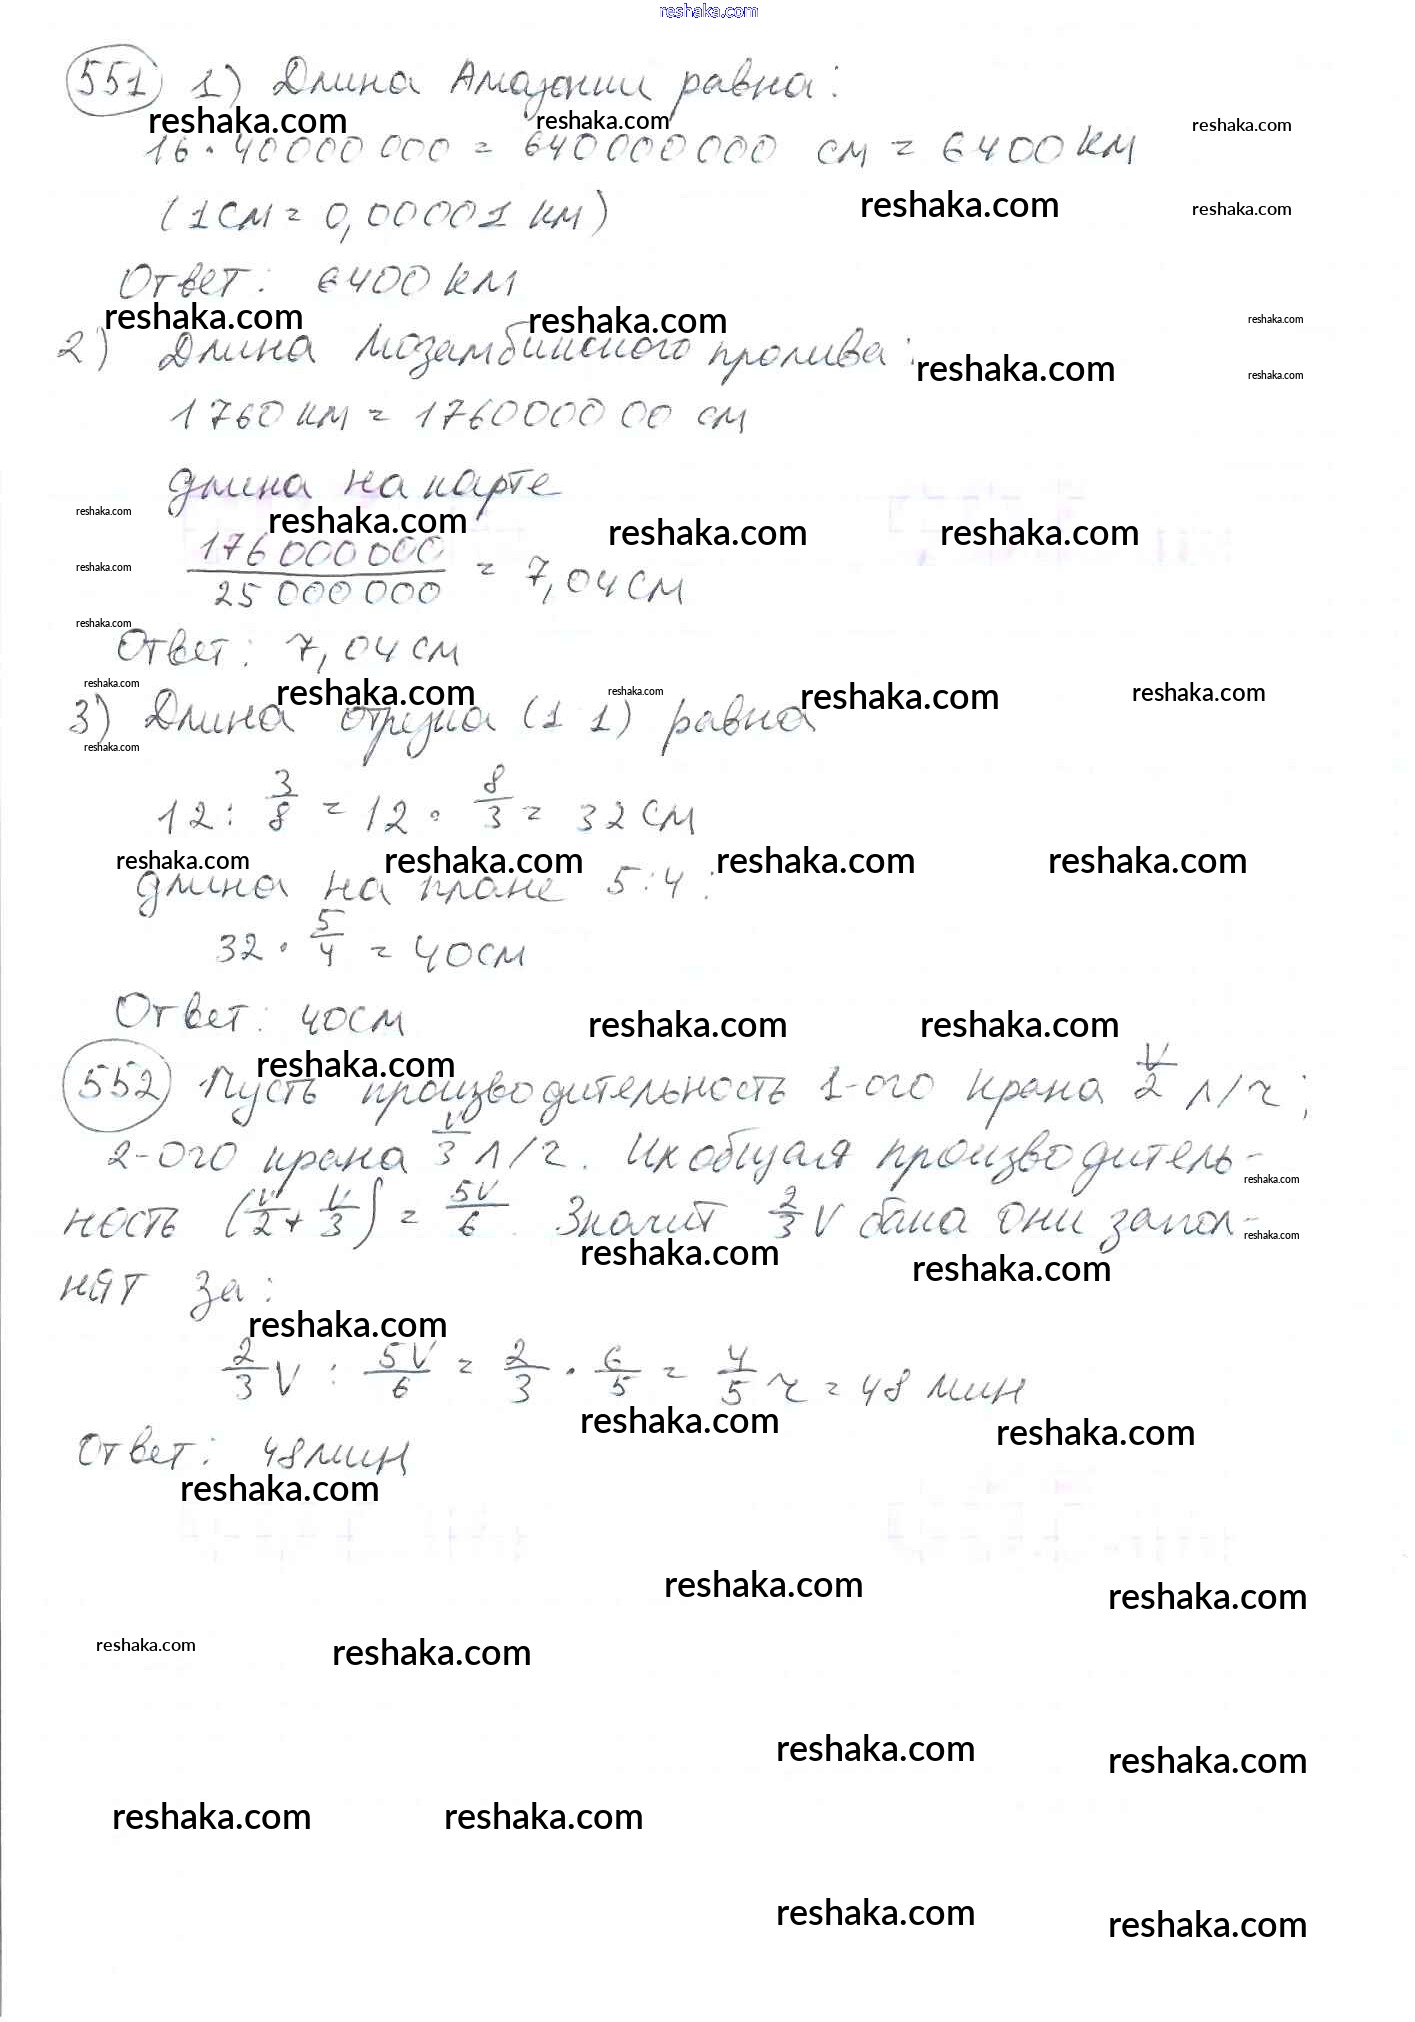 reshaka.com
551 1) Длина Амазонки равна:
reshaka.com reshaka.com reshaka.com
16 · 40000 000 = 640000 000 см = 6400 км
(1 см = 0,00001 км) reshaka.com reshaka.com
Ответ: 6400 км
reshaka.com reshaka.com reshaka.com
2) Длина Мозамбикского пролива:
reshaka.com reshaka.com
1760 км = 1760000 00 см
длина на карте
reshaka.com reshaka.com reshaka.com reshaka.com
176 000 000 / 25 000 000 = 7,04 см
reshaka.com
reshaka.com
Ответ: 7,04 см
reshaka.com reshaka.com reshaka.com reshaka.com reshaka.com
3) Длина отрезка (1 1) равна
reshaka.com
12 : 3/8 = 12 · 8/3 = 32 см
reshaka.com reshaka.com reshaka.com reshaka.com
длина на плане 5:4 :
32 · 5/4 = 40 см
Ответ: 40 см
reshaka.com reshaka.com
reshaka.com
552 Пусть производительность 1-ого крана V/2 л/ч;
2-ого крана V/3 л/ч. Их общая производитель-
reshaka.com
ность (V/2 + V/3) = 5V/6. Значит 2/3 V бака они запол-
reshaka.com
reshaka.com reshaka.com
нят за:
reshaka.com
2/3 V : 5V/6 = 2/3 · 6/5 = 4/5 ч = 48 мин
reshaka.com reshaka.com
Ответ: 48 мин
reshaka.com
reshaka.com reshaka.com
reshaka.com reshaka.com
reshaka.com reshaka.com
reshaka.com reshaka.com
reshaka.com reshaka.com